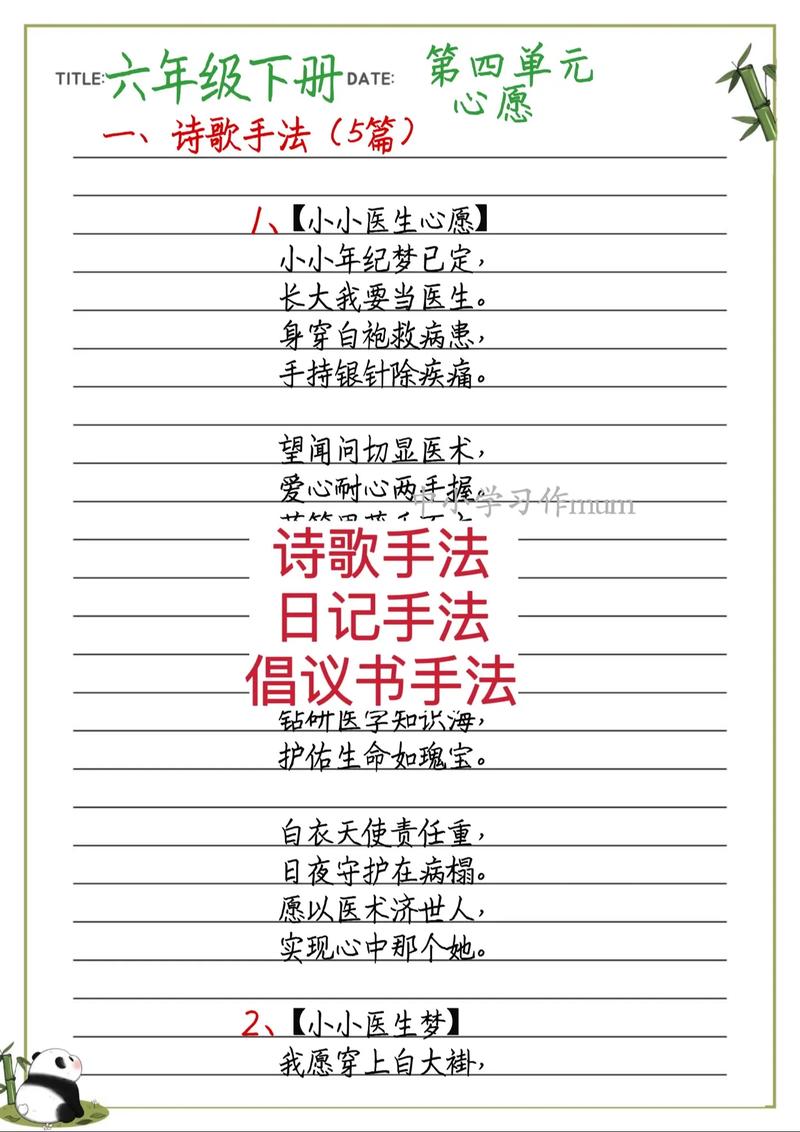 TITLE: 六年级下册 DATE: 第四单元
心愿
一、诗歌手法（5篇）
1、【小小医生心愿】
小小年纪梦已定，
长大我要当医生。
身穿白袍救病患，
手持银针除疾痛。
望闻问切显医术，
爱心耐心两手握。
中小学习作mum
诗歌手法
日记手法
倡议书手法
钻研医学知识海，
护佑生命如瑰宝。
白衣天使责任重，
日夜守护在病榻。
愿以医术济世人，
实现心中那个她。
2、【小小医生梦】
我愿穿上白大褂，